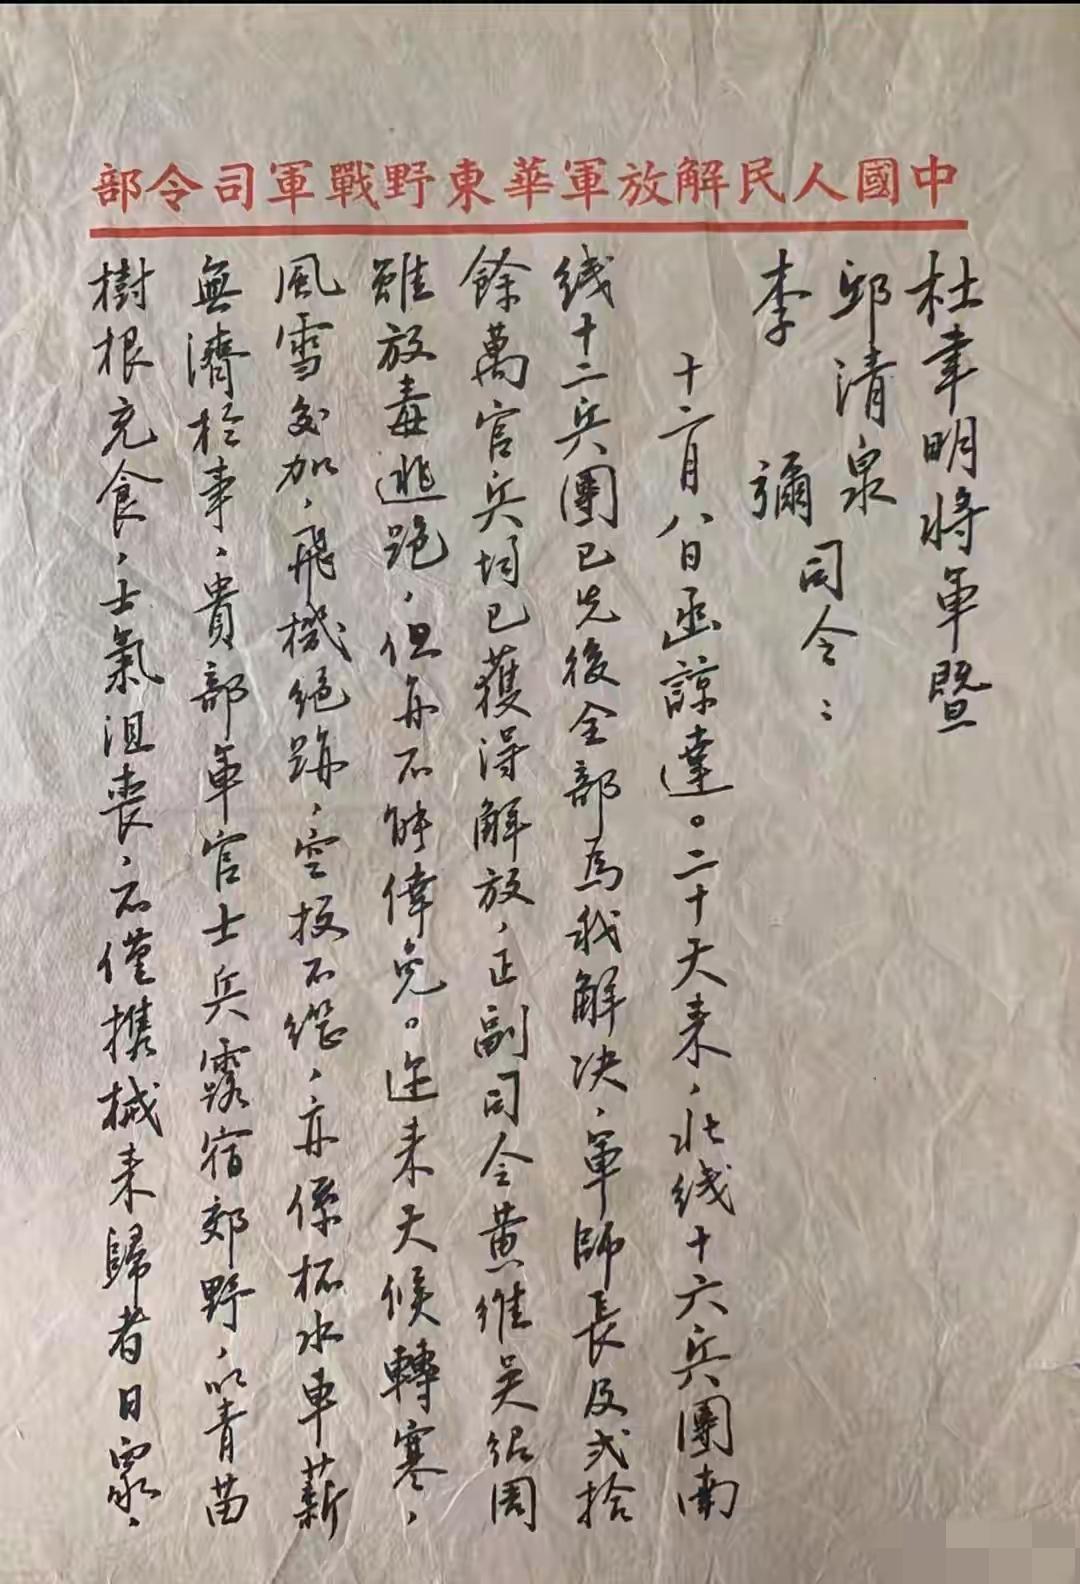 中國人民解放軍華東野戰軍司令部
杜聿明將軍暨
邱清泉
李 彌
司令：
十二月八日函諒達。二十天来，北线十六兵團南
线十二兵團已先後全部為我解决，軍師長及弍拾
餘萬官兵均已獲得解放，正副司令黄维吴绍周
雖放毒逃跑，但亦不能倖免。近来天候轉寒，
風雪交加，飛機绝跡，空投不繼，亦係杯水車薪
無濟於事，貴部軍官士兵露宿郊野，以青苗
樹根充食，士氣沮喪，不僅攜械来歸者日衆，